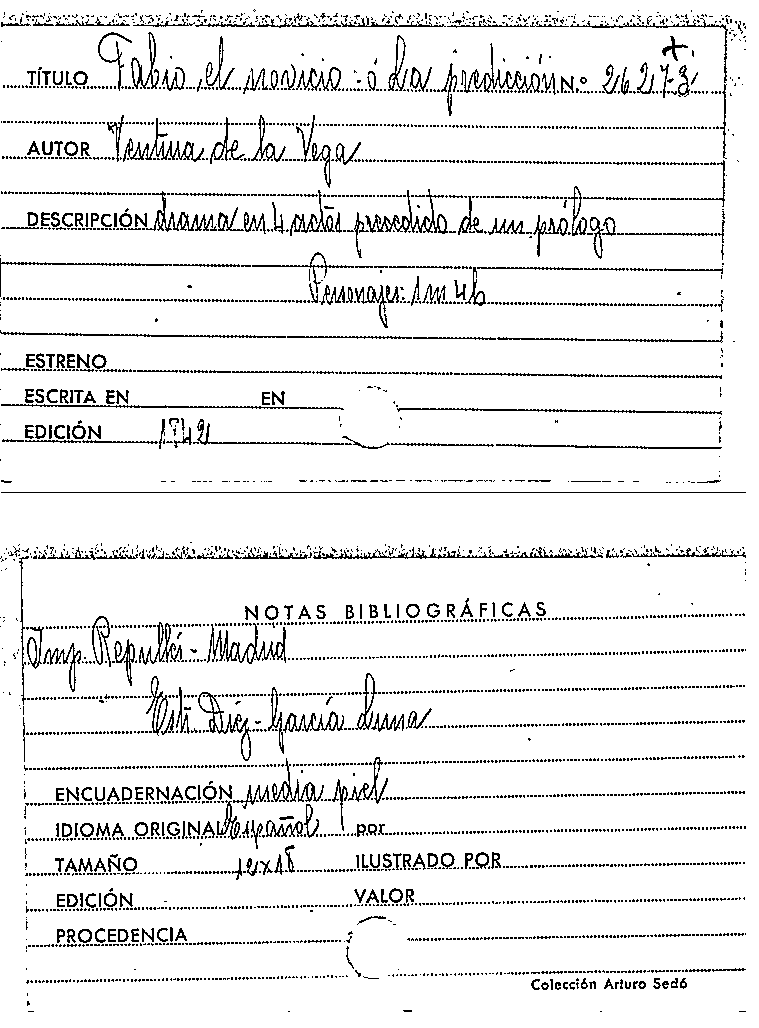 TÍTULO Fabio, el novicio - ó La predicción N.º 26273
AUTOR Ventura de la Vega
DESCRIPCIÓN drama en 4 actos precedido de un prólogo
Personajes: 1m 4h
ESTRENO
ESCRITA EN EN
EDICIÓN 1842
NOTAS BIBLIOGRÁFICAS
Imp. Repullés - Madrid
Est. Díez - García Luna
ENCUADERNACIÓN media piel
IDIOMA ORIGINAL Español por
TAMAÑO 12x18 ILUSTRADO POR
EDICIÓN VALOR
PROCEDENCIA
Colección Arturo Sedó